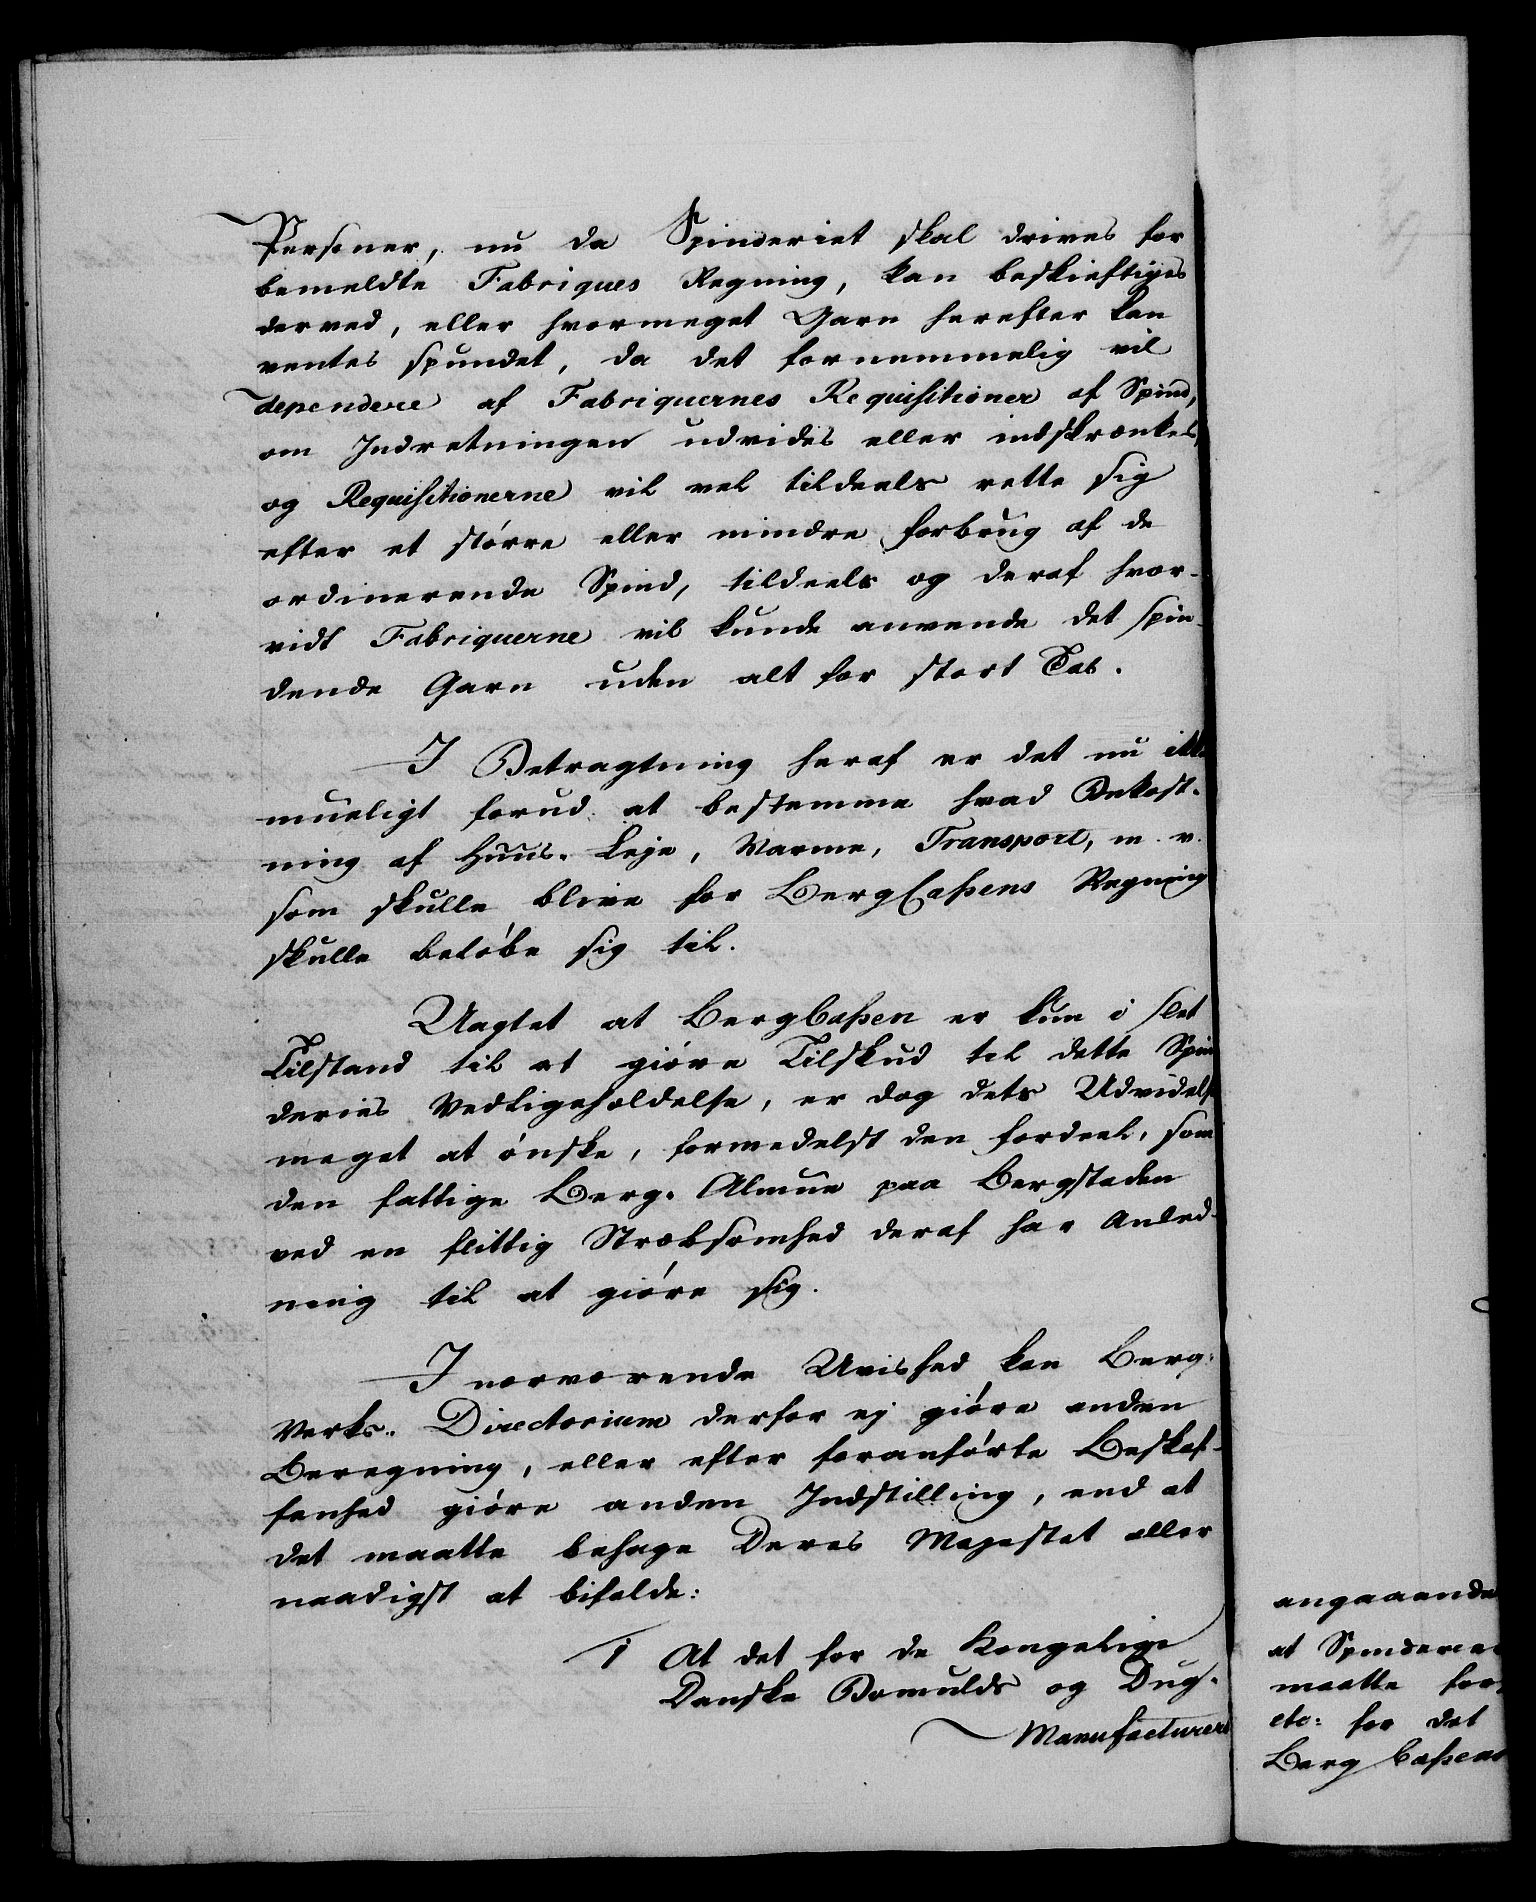 Personer, nu da Spinderiet skal drives for
bemeldte Fabriques Regning, kan beskieftiges
derved, eller hvormeget Garn herefter kan
ventes spundet, da det fornemmelig vil
dependere af Fabriquernes Requisitioner af Spind,
om Indretningen udvides eller indskrænkes,
og Requisitionerne vil vel tildeels rette sig
efter et større eller mindre forbrug af de
ordinerende Spind, tildeels og deraf hvor-
vidt Fabriquerne vil kunde anvende det spin-
dende Garn uden alt for stort Tab.
I Betragtning heraf er det nu ikke
mueligt forud at bestemme hvad Bekost-
ning af Huus-Leje, Varme, Transport, m. v.
som skulle blive for BergCassens Regning
skulle beløbe sig til.
Uagtet at BergCassen er kun i slet
Tilstand til at giøre Tilskud til dette Spin
deries Vedligeholdelse, er dog dets Udvidelse
meget at ønske, formedelst den fordeel, som
den fattige Berg-Almue paa Bergstaden
ved en flittig Stræbsomhed deraf har Anled-
ning til at giøre sig.
I nærværende Uvished kan Berg-
Verks-Directorium derfor ej giøre anden
Beregning, eller efter foranførte Beskaf-
fenhed giøre anden Indstilling, end at
det maatte behage Deres Majestet aller
naadigst at bifalde:
1 At det for de Kongelige
Danske Bomulds og Dug-
Manufacturers
angaaende
at Spinderiet
maatte for
etc: for det
Berg Cassens